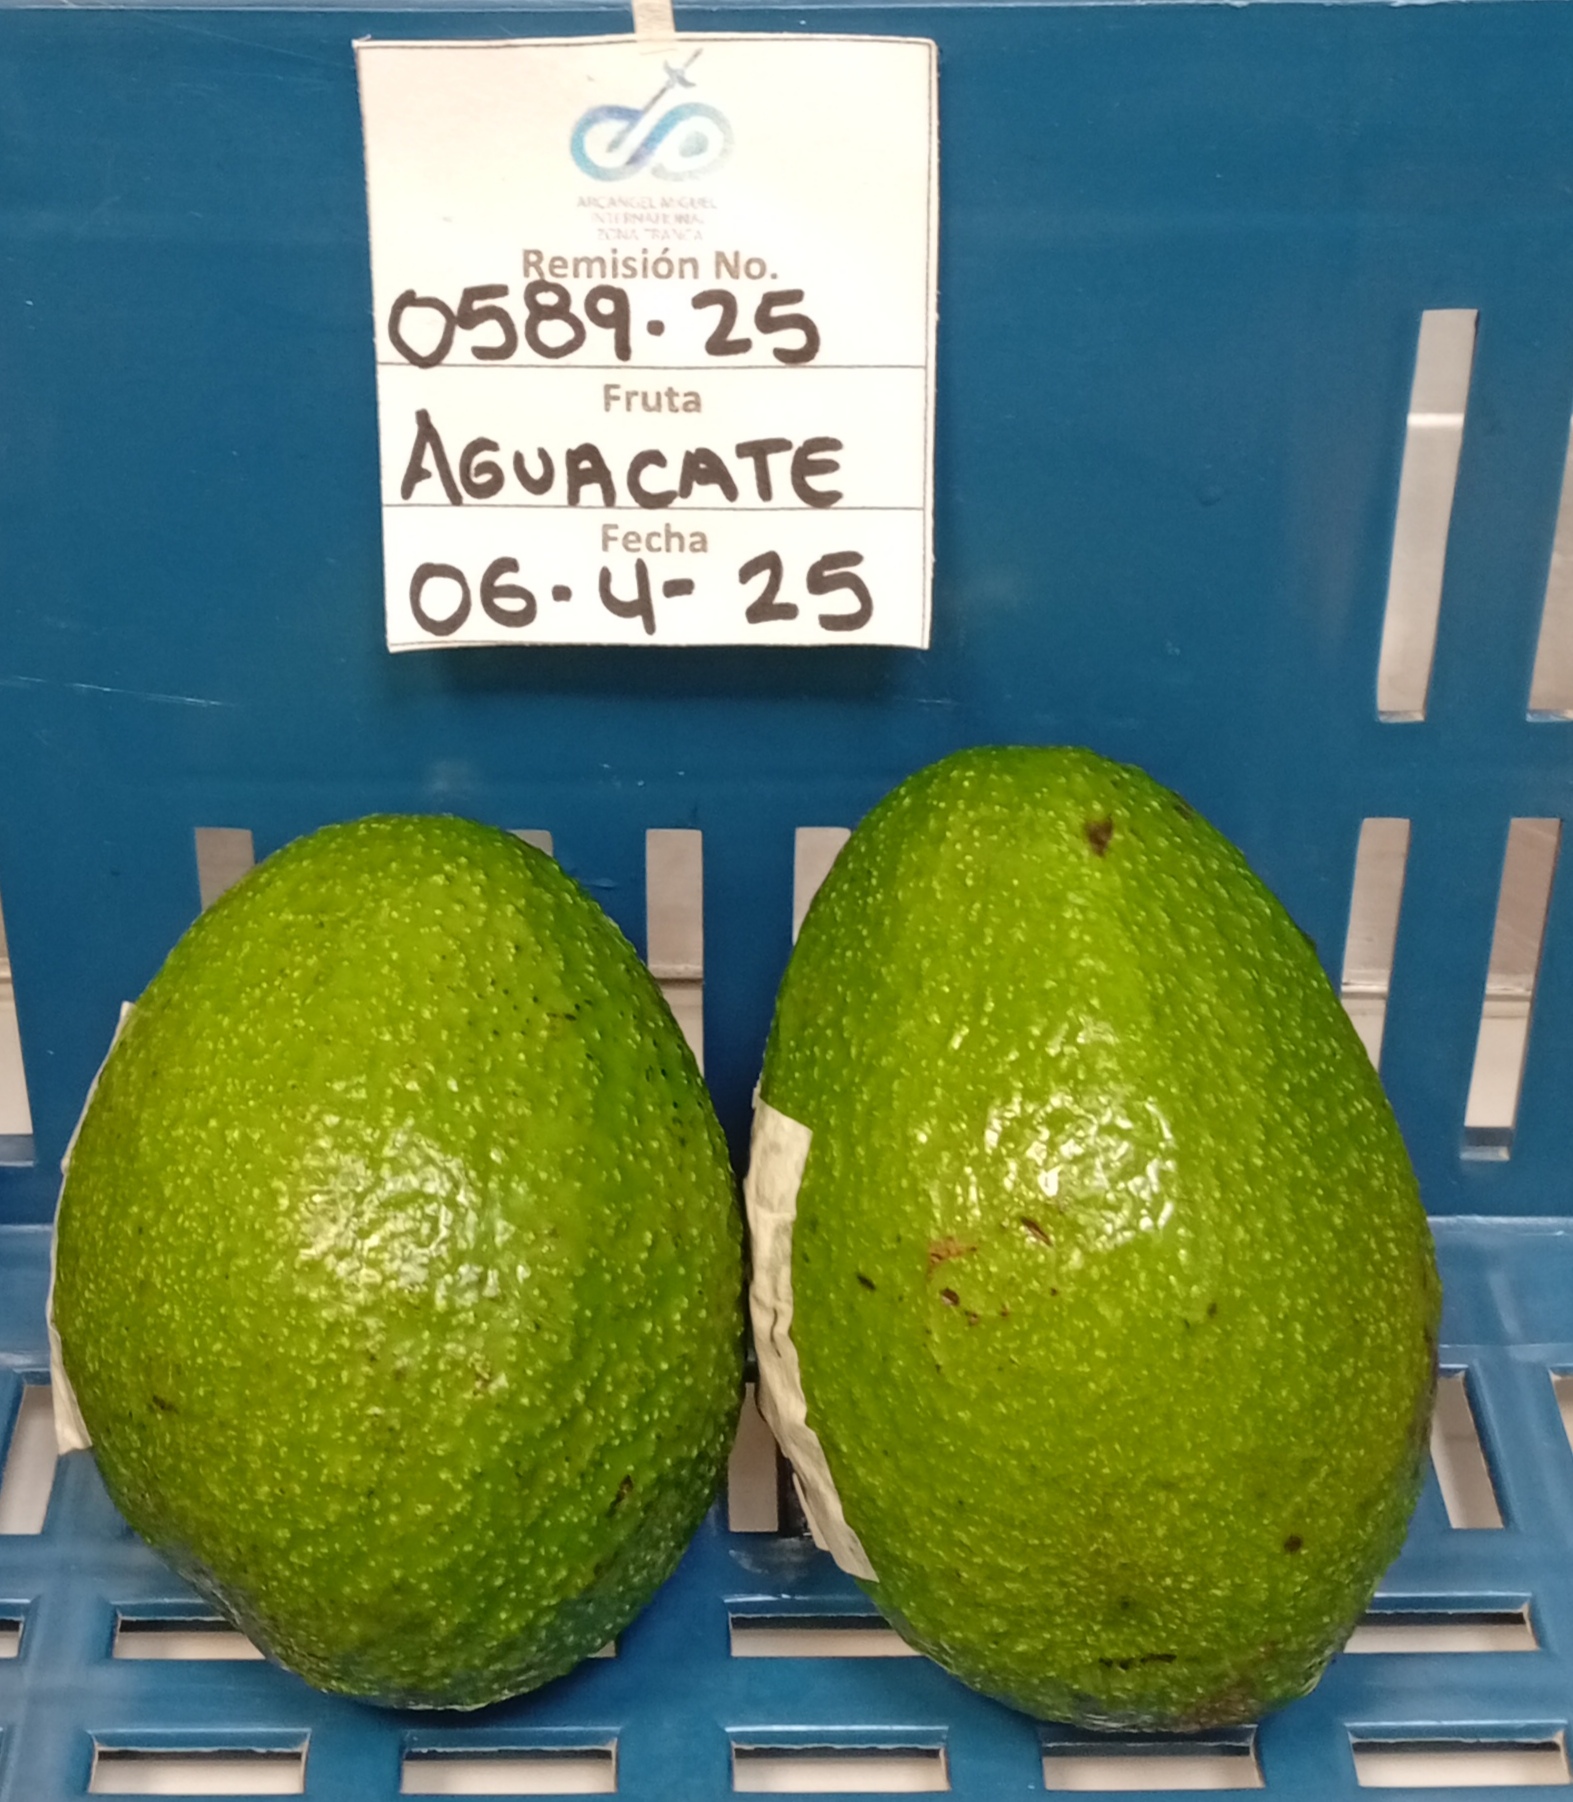 ARCANGEL MIGUEL
INTERNATIONAL
ZONA FRANCA
Remisión No.
0589.25
Fruta
AGUACATE
Fecha
06-4-25